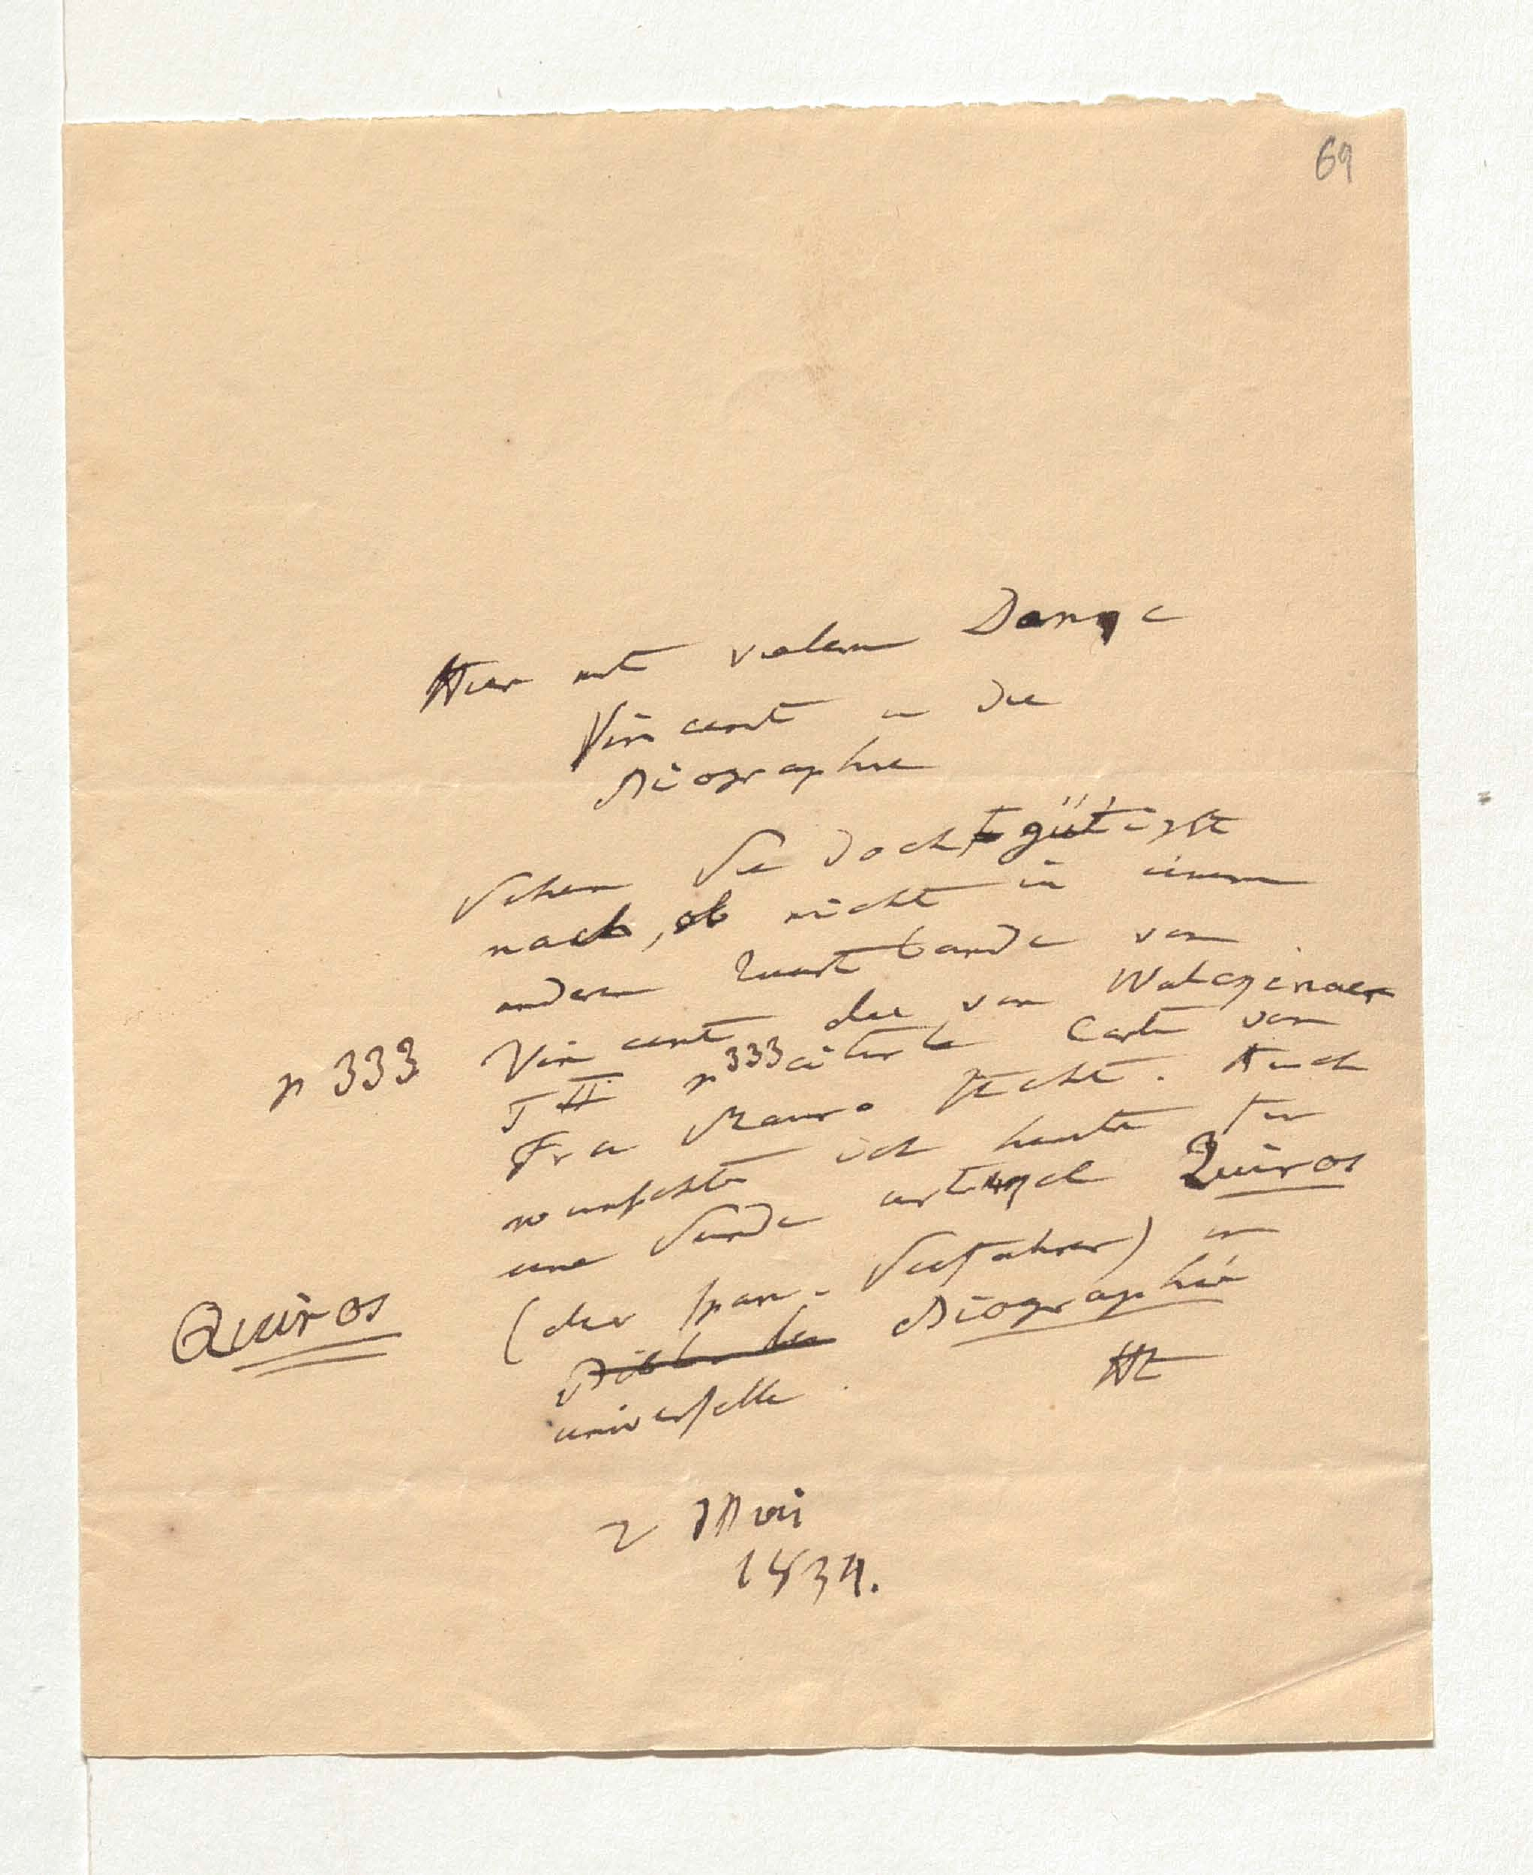 69
Hier mit vielem Danke
Vincent u die
Biographie
Sehen Sie doch gütigst
nach, ob nicht in einem
andern Quartbande von
Vincent die von Walckenaer
p 333
T II p 333 citirte Carte von
Fra Mauro steht. Auch
wünschte ich heute für
eine Stunde artikel Quiros
(der span. Seefahrer) in
Quiros
Biographie
universelle.
Ht
2 Mai
1834.